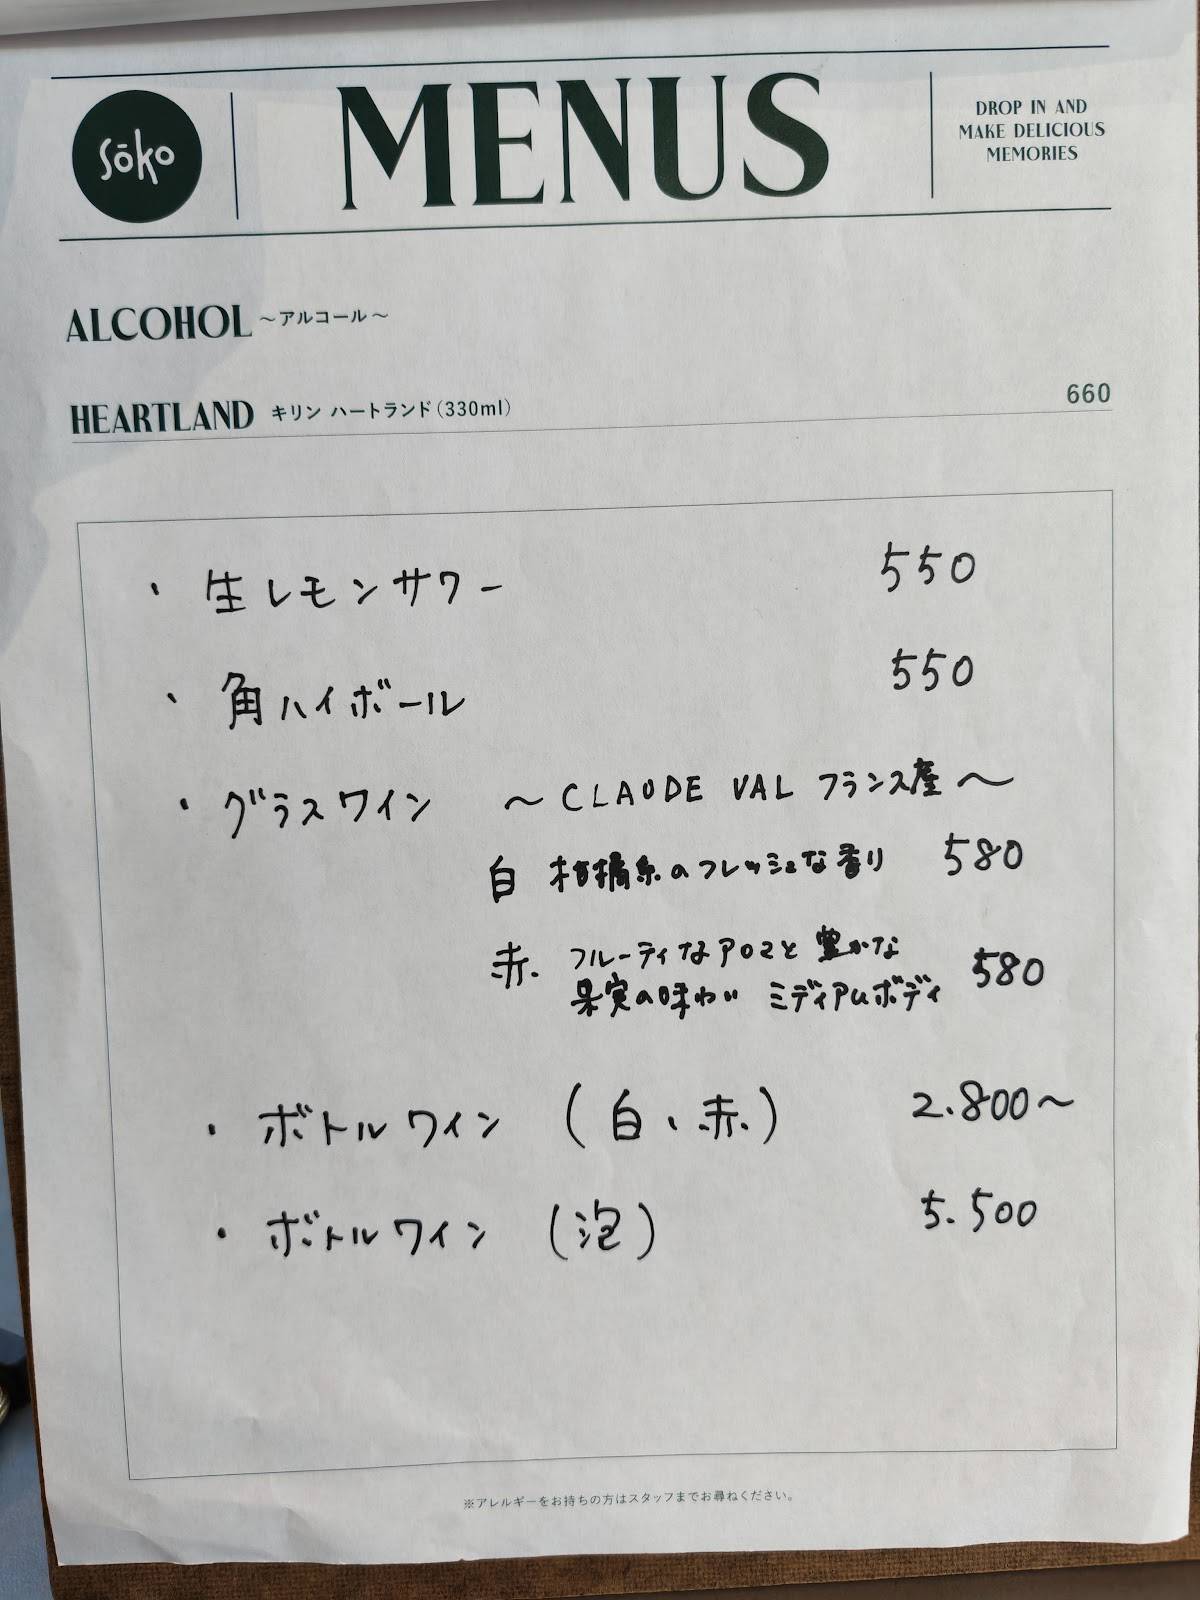 sōko
MENUS
DROP IN AND
MAKE DELICIOUS
MEMORIES
ALCOHOL ~アルコール~
HEARTLAND キリン ハートランド(330ml) 660
・生レモンサワー 550
・角ハイボール 550
・グラスワイン ~CLAUDE VAL フランス産~
白 柑橘系のフレッシュな香り 580
赤 フルーティなアロマと豊かな
果実の味わい ミディアムボディ 580
・ボトルワイン (白、赤) 2.800~
・ボトルワイン (泡) 5.500
※アレルギーをお持ちの方はスタッフまでお尋ねください。